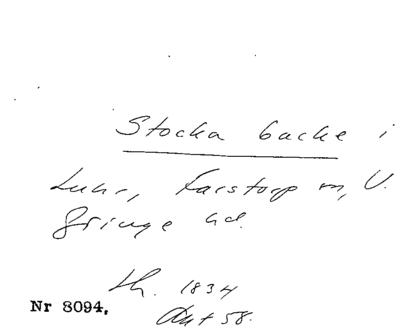 Stocka backe i
Luhr, Farstorp m, V.
Göinge hd.
th. 1834
Akt 58.
Nr 8094.